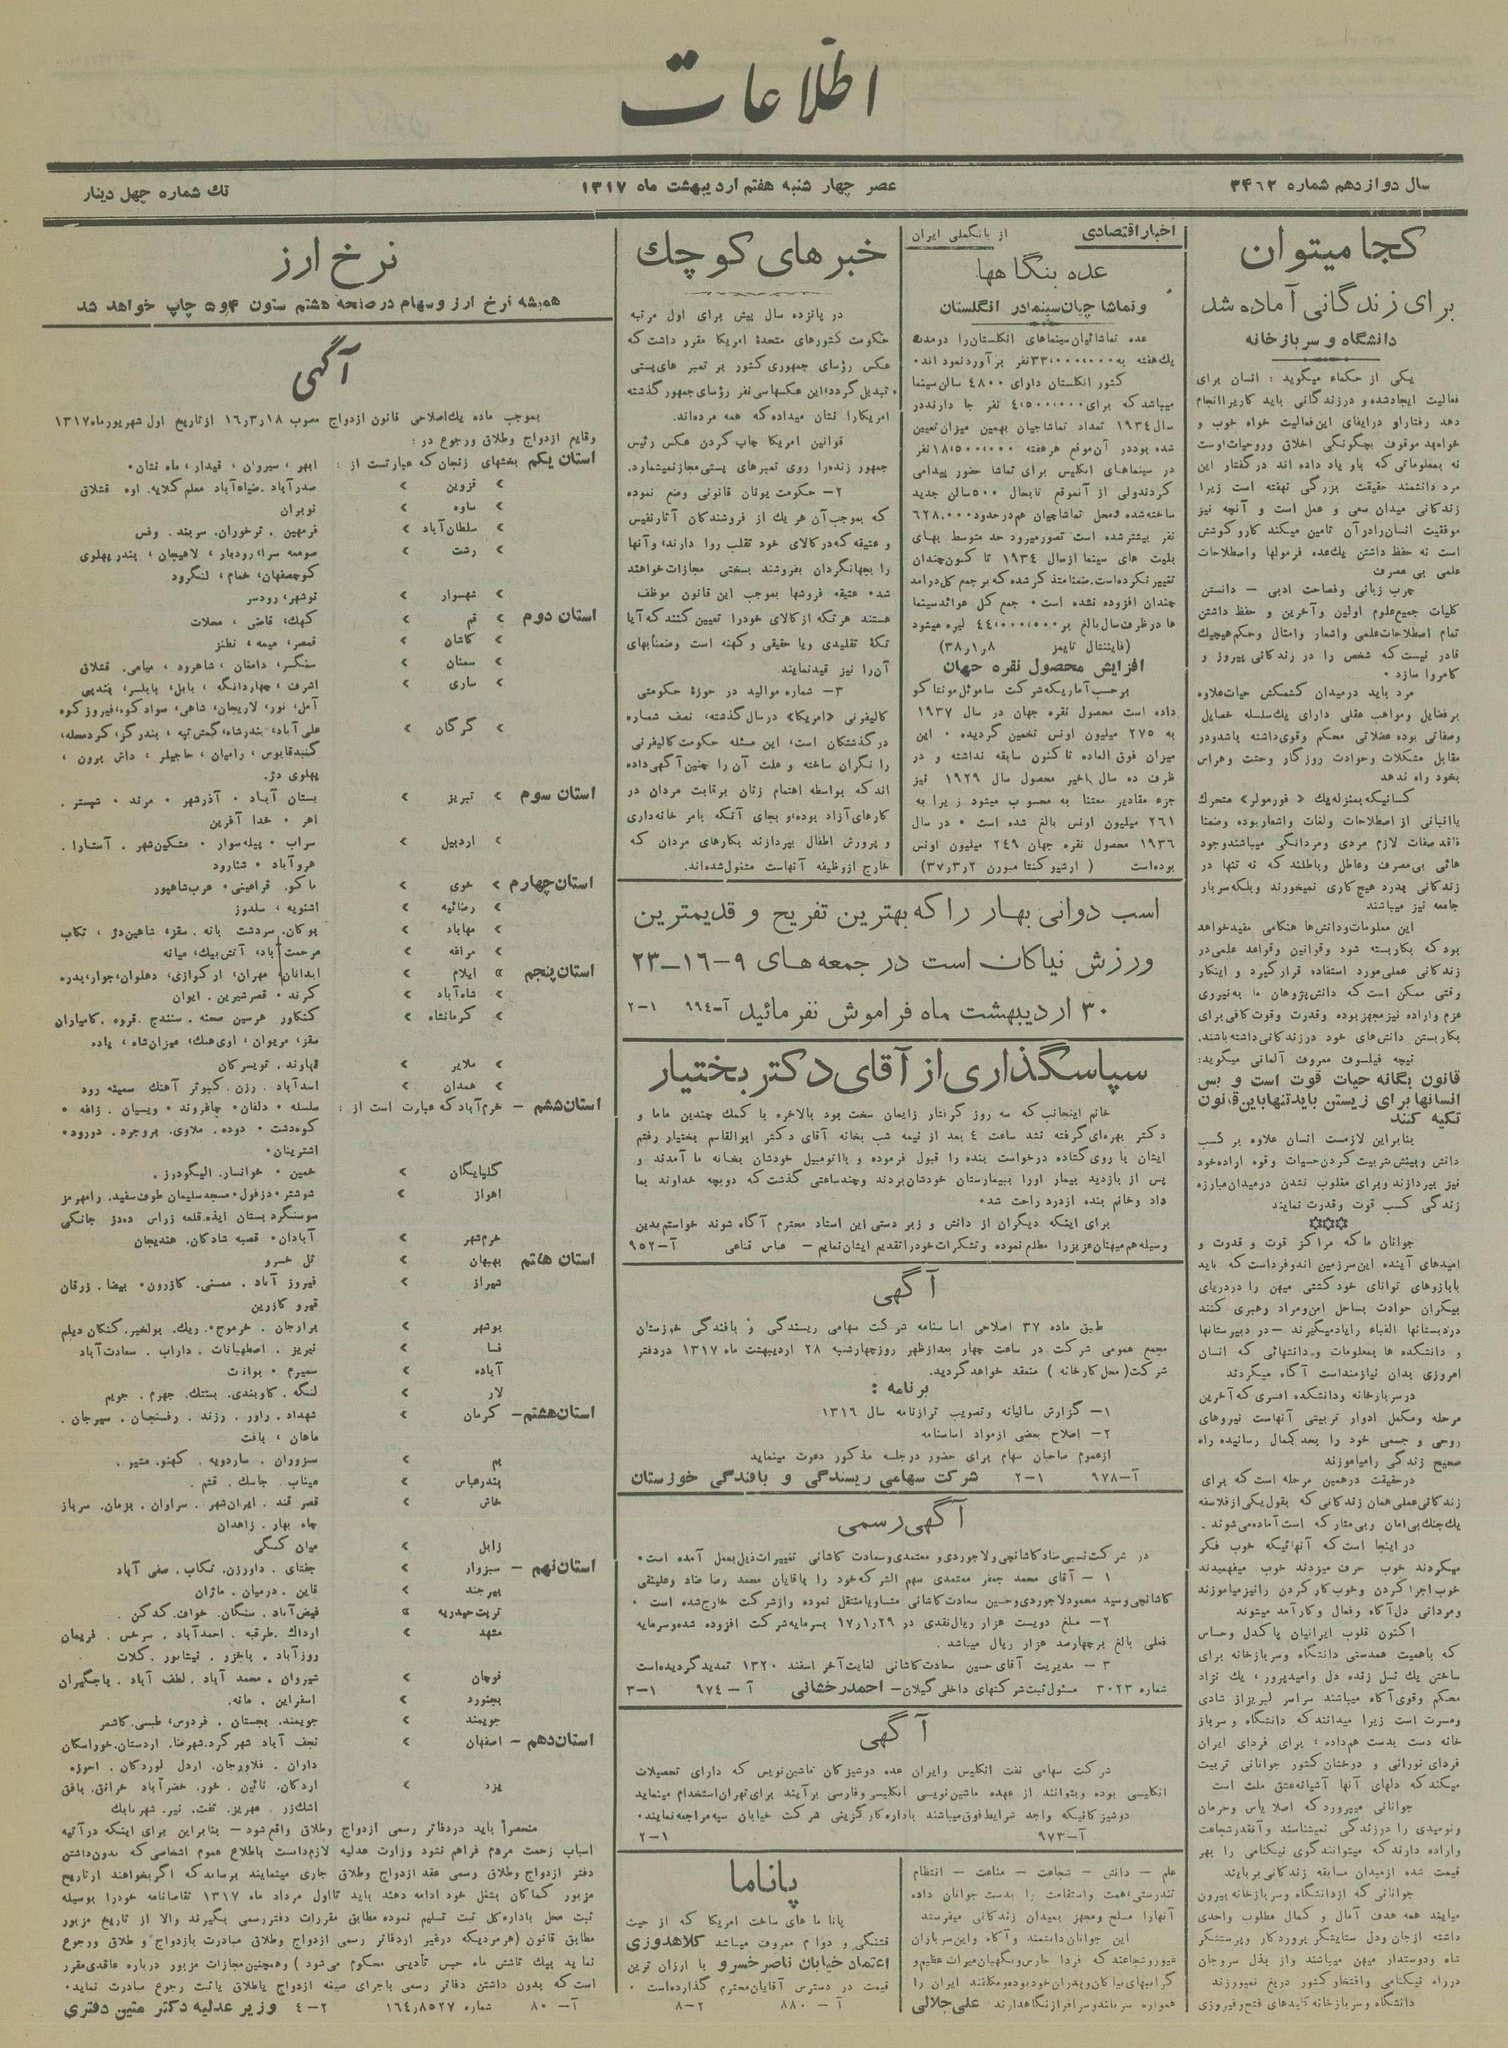 اطلاعات
سال دوازدهم شماره ۳۴۶۲
عصر چهار شنبه هفتم اردیبهشت ماه ۱۳۱۷
تك شماره چهل دینار
کجا میتوان
برای زندگانی آماده شد
دانشگاه و سرباز خانه
یکی از حکماء میگوید : انسان برای
فعالیت ایجادشده و در زندگانی باید کاریرا انجام
دهد رفتار او در ایفای این فعالیت خواه خوب و
خواه بد موقوف بچگونگی اخلاق و روحیات اوست
نه بمعلوماتی که باو یاد داده اند در گفتار این
مرد دانشمند حقیقت بزرگی نهفته است زیرا
زندگانی میدان سعی و عمل است و آنچه نیز
موفقیت انسان را در آن تامین میکند کار و کوشش
است نه حفظ داشتن یك عده فرمولها و اصطلاحات
علمی بی مصرف
چرب زبانی و فصاحت ادبی — دانستن
کلیات جمیع علوم اولین و آخرین و حفظ داشتن
تمام اصطلاحات علمی و اشعار و امثال و حکم هیچیك
قادر نیست که شخص را در زندگانی پیروز و
کامروا سازد .
مرد باید در میدان کشمکش حیات علاوه
بر فضایل و مواهب عقلی دارای یك سلسله خصایل
وصفاتی بوده عضلاتی محکم وقوی داشته باشد و در
مقابل مشکلات و حوادث روزگار وحشت و هراس
بخود راه ندهد
کسانیکه بمنزله یك « فورمولر » متحرك
یا انبانی از اصطلاحات ولغات و اشعار بوده وضمنا
فاقد صفات لازم مردی و مردانگی میباشند وجود
هائی بی مصرف و عاطل و باطلند که نه تنها در
زندگانی بدرد هیچ کاری نمیخورند و بلکه سربار
جامعه نیز میباشند
این معلومات و دانش ها هنگامی مفید خواهد
بود که بکار بسته شود و قوانین وقواعد علمی در
زندگانی عملی مورد استفاده قرار گیرد و اینکار
وقتی ممکن است که دانش پژوهان ما به نیروی
عزم و اراده نیز مجهز بوده وقدرت وقوت کافی برای
بکار بستن دانش های خود در زندگانی داشته باشند.
نیچه فیلسوف معروف آلمانی میگوید:
قانون یگانه حیات قوت است و بس
انسانها برای زیستن باید تنها باین قانون
تکیه کنند
بنابراین لازمست انسان علاوه بر کسب
دانش و بینش بتربیت کردن حسیات وقوه اراده خود
نیز بپردازند و برای مغلوب نشدن در میدان مبارزه
زندگی کسب قوت وقدرت نمایند
جوانان ما که مراکز قوت و قدرت و
امیدهای آینده این سرزمین اند و فرداست که باید
با بازوهای توانای خود کشتی میهن را در دریای
بیکران حوادث بساحل امن و مراد رهبری کنند
در دبستانها الفباء را یاد میگیرند — در دبیرستانها
و دانشکده ها بمعلومات و دانشهائی که انسان
امروزی بدان نیازمند است آگاه میگردند
در سربازخانه و دانشکده افسری که آخرین
مرحله و مکمل ادوار تربیتی آنهاست نیروهای
روحی و جسمی خود را بحد کمال رسانیده راه
صحیح زندگی را میآموزند
در حقیقت در همین مرحله است که برای
زندگانی عملی همان زندگانی که بقول یکی از فلاسفه
یك جنك بی امان و بی متارکه است آماده می شوند .
در اینجا است که آنهائیکه خوب فکر
میکردند خوب حرف میزدند خوب میفهمیدند
خوب اجرا کردن و خوب کار کردن را نیز میاموزند
ومردانی دل آگاه و فعال و کار آمد میشوند
اکنون قلوب ایرانیان پاکدل و حساس
که باهمیت همدستی دانشگاه و سربازخانه برای
ساختن یك نسل زنده دل و امیدپرور ، یك نژاد
محکم وقوی آگاه میباشند سراسر لبریز از شادی
ومسرت است زیرا میدانند که دانشگاه و سرباز
خانه دست بدست هم داده ، برای فردای ایران
فردای نورانی و درخشان کشور جوانانی تربیت
میکند که دلهای آنها آشیانه عشق ملت است
جوانانی میپرورد که اصلا یاس و حرمان
ونومیدی را در زندگی نمیشناسند و آنقدر شجاعت
واراده دارند که میتوانند گوی نیکنامی را بهر
قیمت شده از میدان مسابقه زندگانی بربایند
جوانانی که از دانشگاه و سربازخانه بیرون
میایند همه هدف آمال و کمال مطلوب واحدی
داشته از جان ودل ستایشگر پروردگار و پرستشگر
شاه ودوستدار میهن میباشند و از بذل سروجان
در راه نیکنامی وافتخار کشور دریغ نمیورزند
دانشگاه و سربازخانه کلیدهای فتح و فیروزی
اخبار اقتصادی
از بانکملی ایران
عده بنگاهها
و تماشاچیان سینما در انگلستان
عده تماشائیان سینماهای انگلستان را در مدت
یك هفته به ۳۳،۰۰۰،۰۰۰ نفر برآورد نموده اند.
کشور انگلستان دارای ۴۸۰۰ سالن سینما
میباشد که برای ۴،۵۰۰،۰۰۰ نفر جا دارند در
سال ۱۹۳۴ تعداد تماشاچیان بهمین میزان تعیین
شده بود در آن موقع هر هفته ۱۸،۵۰۰،۰۰۰ نفر
در سینماهای انگلیس برای تماشا حضور پیدا می
کردند ولی از آنموقع تا بحال ۵۰۰ سالن جدید
ساخته شده و محل تماشاچیان هم در حدود ۶۲۸،۰۰۰
نفر بیشتر شده است تصور میرود حد متوسط بهای
بلیت های سینما از سال ۱۹۳۴ تا کنون چندان
تغییر نکرده است. ضمنا متذکر شده که بر جمع کل درآمد
چندان افزوده نشده است . جمع کل عوائد سینما
ها در ظرف سال بالغ بر ۴۴،۰۰۰،۵۰۰ لیره میشود
(فایننشال تایمز ۸ر۱ر۳۸)
افزایش محصول نقره جهان
برحسب آماریکه شرکت ساموئل مونتاکو
داده است محصول نقره جهان در سال ۱۹۳۷
به ۲۷۵ میلیون اونس تخمین گردیده . این
میزان فوق العاده تاکنون سابقه نداشته و در
ظرف ده سال اخیر محصول سال ۱۹۲۹ نیز
جزء مقادیر معتنا به محسوب میشود زیرا به
۲۶۱ میلیون اونس بالغ شده است . در سال
۱۹۳۶ محصول نقره جهان ۲۴۹ میلیون اونس
بوده است
خبرهای کوچك
در پانزده سال پیش برای اول مرتبه
حکومت کشورهای متحدهٔ امریکا مقرر داشت که
عکس رؤسای جمهوری کشور بر تمبر های پستی
تبدیل گردد، این عکسها سی نفر رؤسای جمهور گذشته
امریکا را نشان میداده که همه مرده اند.
قوانین امریکا چاپ کردن عکس رئیس
جمهور زنده را روی تمبرهای پستی مجاز نمیشمارد.
۲— حکومت یونان قانونی وضع نموده
که بموجب آن هر یك از فروشندگان آثار نفیس
و عتیقه که در کالای خود تقلب روا دارند، و آنها
را بجهانگردان بفروشند بسختی مجازات خواهند
شد. عتیقه فروشها بموجب این قانون موظف
هستند هر تکه از کالای خود را تعیین کنند که آیا
تکهٔ تقلیدی و یا حقیقی و کهنه است و ضمنا بهای
آن را نیز قید نمایند
۳— شماره موالید در حوزهٔ حکومتی
کالیفرنی «امریکا» در سال گذشته، نصف شماره
درگذشتگان است، این مسئله حکومت کالیفرنی
را نگران ساخته و علت آن را چنین آگهی داده
اند که بواسطه اهتمام زنان برقابت مردان در
کارهای آزاد بوده، و بجای آنکه بامر خانه داری
و پرورش اطفال بپردازند بکارهای مردان که
خارج از وظیفه آنهاست مشغول شده اند.
اسب دوانی بهار را که بهترین تفریح و قدیمترین
ورزش نیاکان است در جمعه های ۹—۱۶—۲۳
۳۰ اردیبهشت ماه فراموش نفرمائید آ—۹۹۴ ۱—۲
سپاسگذاری از آقای دکتر بختیار
خانم اینجانب که سه روز گرفتار زایمان سخت بود بالاخره با کمك چندین ماما و
دکتر بهره‌ای گرفته نشد ساعت ۴ بعد از نیمه شب بخانه آقای دکتر ابوالقاسم بختیار رفتم
ایشان با روی گشاده درخواست بنده را قبول فرموده و با اتومبیل خودشان بخانه ما آمدند و
پس از بازدید بیمار اورا ببیمارستان خودشان بردند و چند ساعتی گذشت که دو بچه خداوند بما
داد و خانم بنده از درد راحت شد.
برای اینکه دیگران از دانش و زبر دستی این استاد محترم آگاه شوند خواستم بدین
وسیله هم میهنان عزیز را مطلع نموده و تشکرات خود را تقدیم ایشان نمایم — عباس قناعی آ—۹۵۲
آگهی
طبق ماده ۳۷ اصلاحی اساسنامه شرکت سهامی ریسندگی و بافندگی خوزستان
مجمع عمومی شرکت در ساعت چهار بعد از ظهر روز چهارشنبه ۲۸ اردیبهشت ماه ۱۳۱۷ در دفتر
شرکت ( محل کارخانه ) منعقد خواهد گردید.
برنامه :
۱— گزارش سالیانه و تصویب ترازنامه سال ۱۳۱۶
۲— اصلاح بعضی از مواد اساسنامه
از عموم صاحبان سهام برای حضور در جلسه مذکور دعوت مینماید
آ—۹۷۸ ۱—۲ شرکت سهامی ریسندگی و بافندگی خوزستان
آگهی رسمی
در شرکت نسبی ضاد کاشانچی و لاجوردی و معتمدی و سعادت کاشانی تغییرات ذیل بعمل آمده است.
۱ — آقای محمد جعفر معتمدی سهم الشرکه خود را باقایان محمد رضا ضاد و علینقی
کاشانچی و سید محمود لاجوردی و حسین سعادت کاشانی متساویا منتقل نموده و از شرکت خارج شده است .
۲— مبلغ دویست هزار ریال نقدی در ۲۹ر۱ر۱۷ بسرمایه شرکت افزوده شده و سرمایه
فعلی بالغ بر چهارصد هزار ریال میباشد .
۳— مدیریت آقای حسین سعادت کاشانی لغایت آخر اسفند ۱۳۲۰ تمدید گردیده است
شماره ۳۰۲۳ مسئول ثبت شرکتهای داخلی گیلان — احمد رخشانی آ—۹۷۴ ۱—۳
آگهی
شرکت سهامی نفت انگلیس و ایران عده دوشیزگان ماشین نویس که دارای تحصیلات
انگلیسی بوده و بتوانند از عهده ماشین نویسی انگلیسی و فارسی برآیند برای تهران استخدام مینماید
دوشیزگانیکه واجد شرایط فوق میباشند باداره کارگزینی شرکت خیابان سپه مراجعه نمایند.
آ—۹۷۳ ۱—۲
علم — دانش — شجاعت — مناعت — انتظام
تندرستی، همت و استقامت را بدست جوانان داده
آنها را مسلح و مجهز بمیدان زندگانی میفرستد
این جوانان دانشمند و آگاه و این سربازان
غیور و شجاعند که فردا حارس و نگهبان میراث عظیم و
گرانبهای نیاکان و پدران خود بوده و مملکت ایران را
همواره سربلند و سرافراز نگاهدارند علی جلالی
پاناما
پاناماهای ساخت امریکا که از حیث
قشنگی و دوام معروف میباشد کلاهدوزی
اعتماد خیابان ناصر خسرو با ارزان ترین
قیمت در دسترس آقایان محترم گذارده است .
آ — ۸۸۰ ۲—۸
نرخ ارز
همیشه نرخ ارز و سهام در صفحه هشتم ستون ۴ و ۵ چاپ خواهد شد
آگهی
بموجب ماده یك اصلاحی قانون ازدواج مصوب ۱۸ر۳ر۱۶ از تاریخ اول شهریور ماه ۱۳۱۷
وقایع ازدواج و طلاق و رجوع در :
استان یکم بخشهای زنجان که عبارتست از : ابهر ، سیروان ، قیدار ، ماه نشان .
» قزوین » صدرآباد . ضیاءآباد معلم کلایه . اوه قشلاق
» ساوه » نوبران
» سلطان آباد » فرمهین . ترخوران . سربند . وفس
» رشت » صومعه سرا، رودبار ، لاهیجان ، بندر پهلوی
کوچصفهان، خمام ، لنگرود
» شهسوار » نوشهر، رودسر
استان دوم » قم » کهك، قاضی ، محلات
» کاشان » قمصر، میمه ، نطنز
» سمنان » سنگسر، دامغان ، شاهرود ، میامی. قشلاق
» ساری » اشرف ، چهاردانگه ، بابل، بابلسر، بندپی
آمل، نور، لاریجان، شاهی، سوادکوه، فیروزکوه
» گرگان » علی آباد، بندرشاه، گمش تپه ، بندرگز، کردمحله،
گنبد قابوس ، رامیان ، حاجیلر ، داش برون ،
پهلوی دژ.
استان سوم » تبریز » بستان آباد . آذرشهر . مرند . شبستر .
اهر . خدا آفرین
» اردبیل » سراب . پیله سوار . مشکین شهر . آستارا .
هروآباد .
استان چهارم » خوی » ماکو. قراعینی. عرب شاهپور
» رضائیه » اشنویه ، سلدوز
» مهاباد » بوکان. سردشت بانه . سقز، شاهین دژ ، تکاب
» مراغه » مرحمت آباد، آتش بیك، میانه
استان پنجم » ایلام » ابدانان، مهران، ارکوازی، دهلوان، جوار، بدره
» شاه آباد » کرند . قصرشیرین . ایوان
» کرمانشاه » کنگاور هرسین صحنه . سنندج . قروه . کامیاران
سقز، مریوان ، اوی هنك، میزان شاه ، پاوه
» ملایر » نهاوند. تویسرکان
» همدان » اسدآباد . رزن. کبوتر آهنك سمینه رود
استان ششم — خرم آباد که عبارت است از : سلسله . دلفان. چاقروند . ویسیان . زاغه .
کوه دشت . دوده. ملاوی. بروجرد . دورود .
اشترینان.
گلپایگان » خمین . خوانسار. الیگودرز .
اهواز » شوشتر. دزفول. مسجد سلیمان طوف سفید. رامهرمز
سوسنگرد بستان ایذه. قلعه زراس ده دژ جانکی
خرمشهر » آبادان. قصبه شادکان. هندیجان
استان هفتم بهبهان » تل خسرو
شیراز » فیروز آباد . ممسنی. کازرون. بیضا. زرقان
قیر و کارزین
بوشهر » برازجان . خرموج. ریك. بولخیر. کنگان دیلم
فسا » نیریز . اصطهبانات . داراب . سعادت آباد
آباده » سمیرم . بوانات
لار » لنگه . کاوبندی. بستك. جهرم . جویم
استان هشتم — کرمان » شهداد. راور . زرند . رفسنجان . سیرجان .
ماهان ، بافت
بم » سبزواران . ساردویه .
بندرعباس » میناب . جاسك . قشم .
خاش » قصر قند . ایران شهر . سراوان . بزمان. سرباز
چاه بهار . زاهدان
زابل » میان کنگی
استان نهم — سبزوار » جغتای . داورزن. تکاب. صفی آباد
بیرجند » قاین . درمیان . ماژان
تربت حیدریه » فیض آباد . سنگان . خواف. کدکن .
مشهد » ارداك . طرقبه . احمدآباد . سرخس . فریمان
روزآباد . باخرز . نیشابور . کلات
قوچان » شیروان . محمد آباد . لطف آباد . باجگیران
بجنورد » اسفراین . مانه.
جویمند » جویمند. بجستان . فردوس، طبس. کاشمر
استان دهم — اصفهان » نجف آباد شهر کرد. شهرضا. اردستان. خوراسکان
داران . فلاورجان . اردل لوردگان . اخوزه
یزد » اردکان. نائین . خور. خضرآباد خرانق. بافق
اشك زر . مهریز. تفت. نیر. شهر بابك
منحصرأ باید در دفاتر رسمی ازدواج و طلاق واقع شود — بنابراین برای اینکه در آتیه
اسباب زحمت مردم فراهم نشود وزارت عدلیه لازم دانست باطلاع عموم اشخاصی که بدون داشتن
دفتر ازدواج و طلاق رسمی عقد ازدواج و طلاق جاری مینمایند برساند که اگر بخواهند از تاریخ
مزبور کماکان بشغل خود ادامه دهند باید تا اول مرداد ماه ۱۳۱۷ تقاضانامه خود را بوسیله
ثبت محل باداره کل ثبت تسلیم نموده مطابق مقررات دفتر رسمی بگیرند والا از تاریخ مزبور
مطابق قانون (هر مردیکه در غیر از دفاتر رسمی ازدواج و طلاق مبادرت بازدواج و طلاق و رجوع
نماید بیك تا شش ماه حبس تأدیبی محکوم می شود ) و همچنین مجازات مزبور درباره عاقدی مقرر
است که بدون داشتن دفاتر رسمی باجرای صیغه ازدواج یا طلاق یا ثبت رجوع مبادرت نماید.
آ— ۸۰ شماره ۱۶۴ر۸۵۲۷ ۲—۴ وزیر عدلیه دکتر متین دفتری